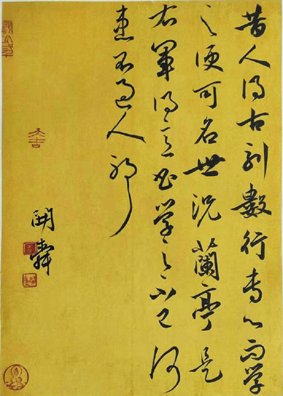 昔人得古刻數行專心而學
之便可名世況蘭亭是
右軍得意書學之不已何
患不過人耶